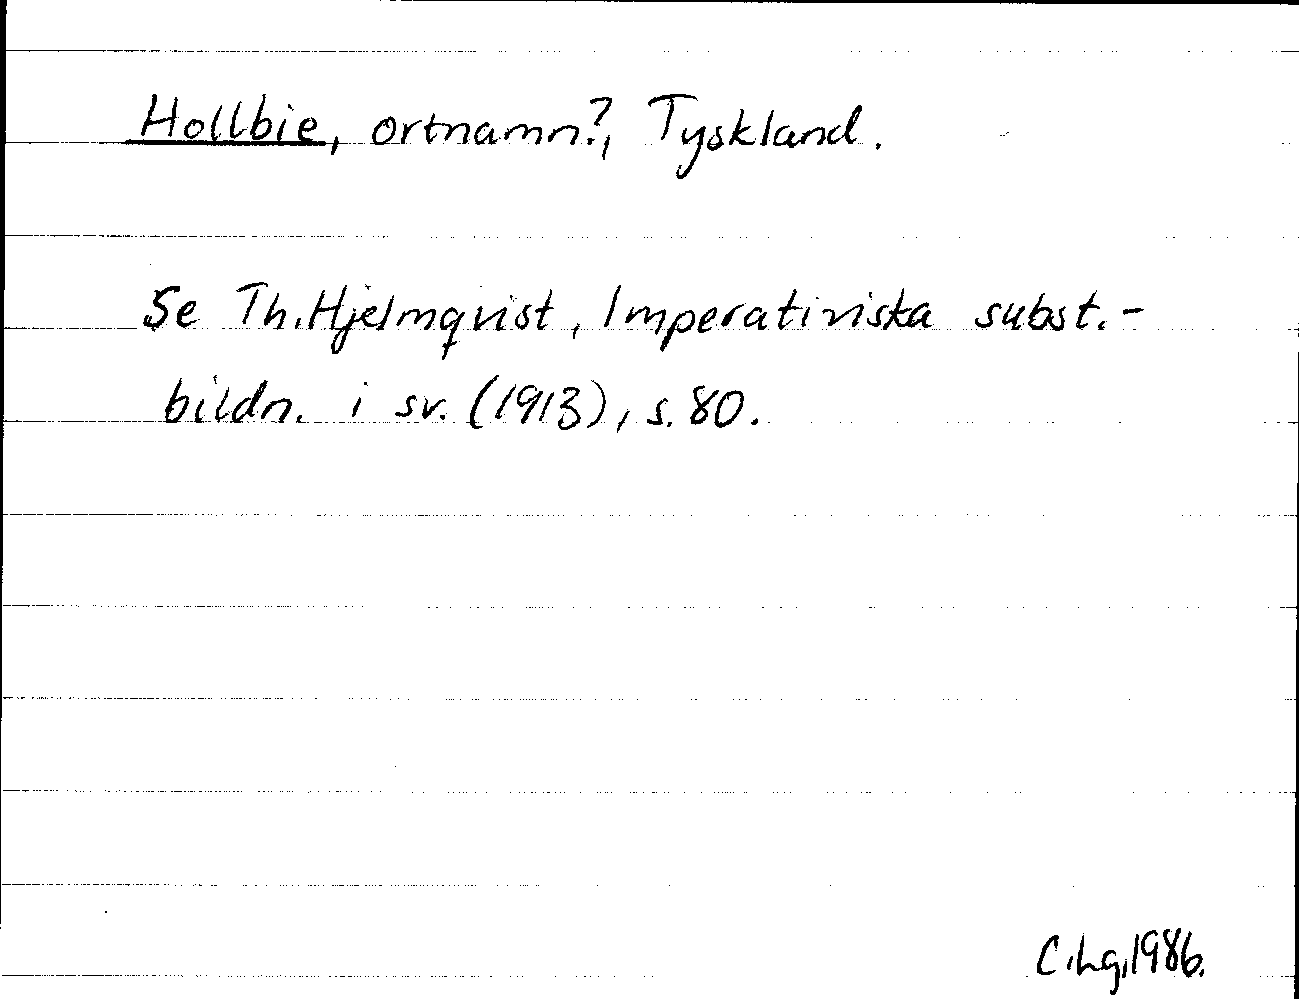 Hollbie, ortnamn?, Tyskland.
Se Th. Hjelmqvist, Imperativiska subst.-
bildn. i sv. (1913), s. 80.
C.Lg. 1986.